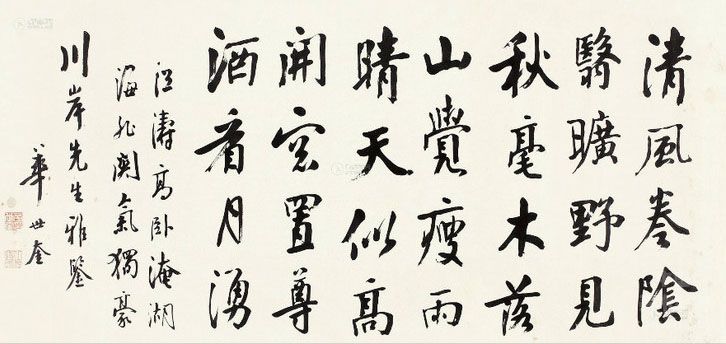 清風卷陰
翳曠野見
秋毫木落
山覺瘦雨
晴天似高
開窓置尊
酒看月湧
江濤高卧淹湖
海 氣獨豪
川岸先生雅鑒
華世奎